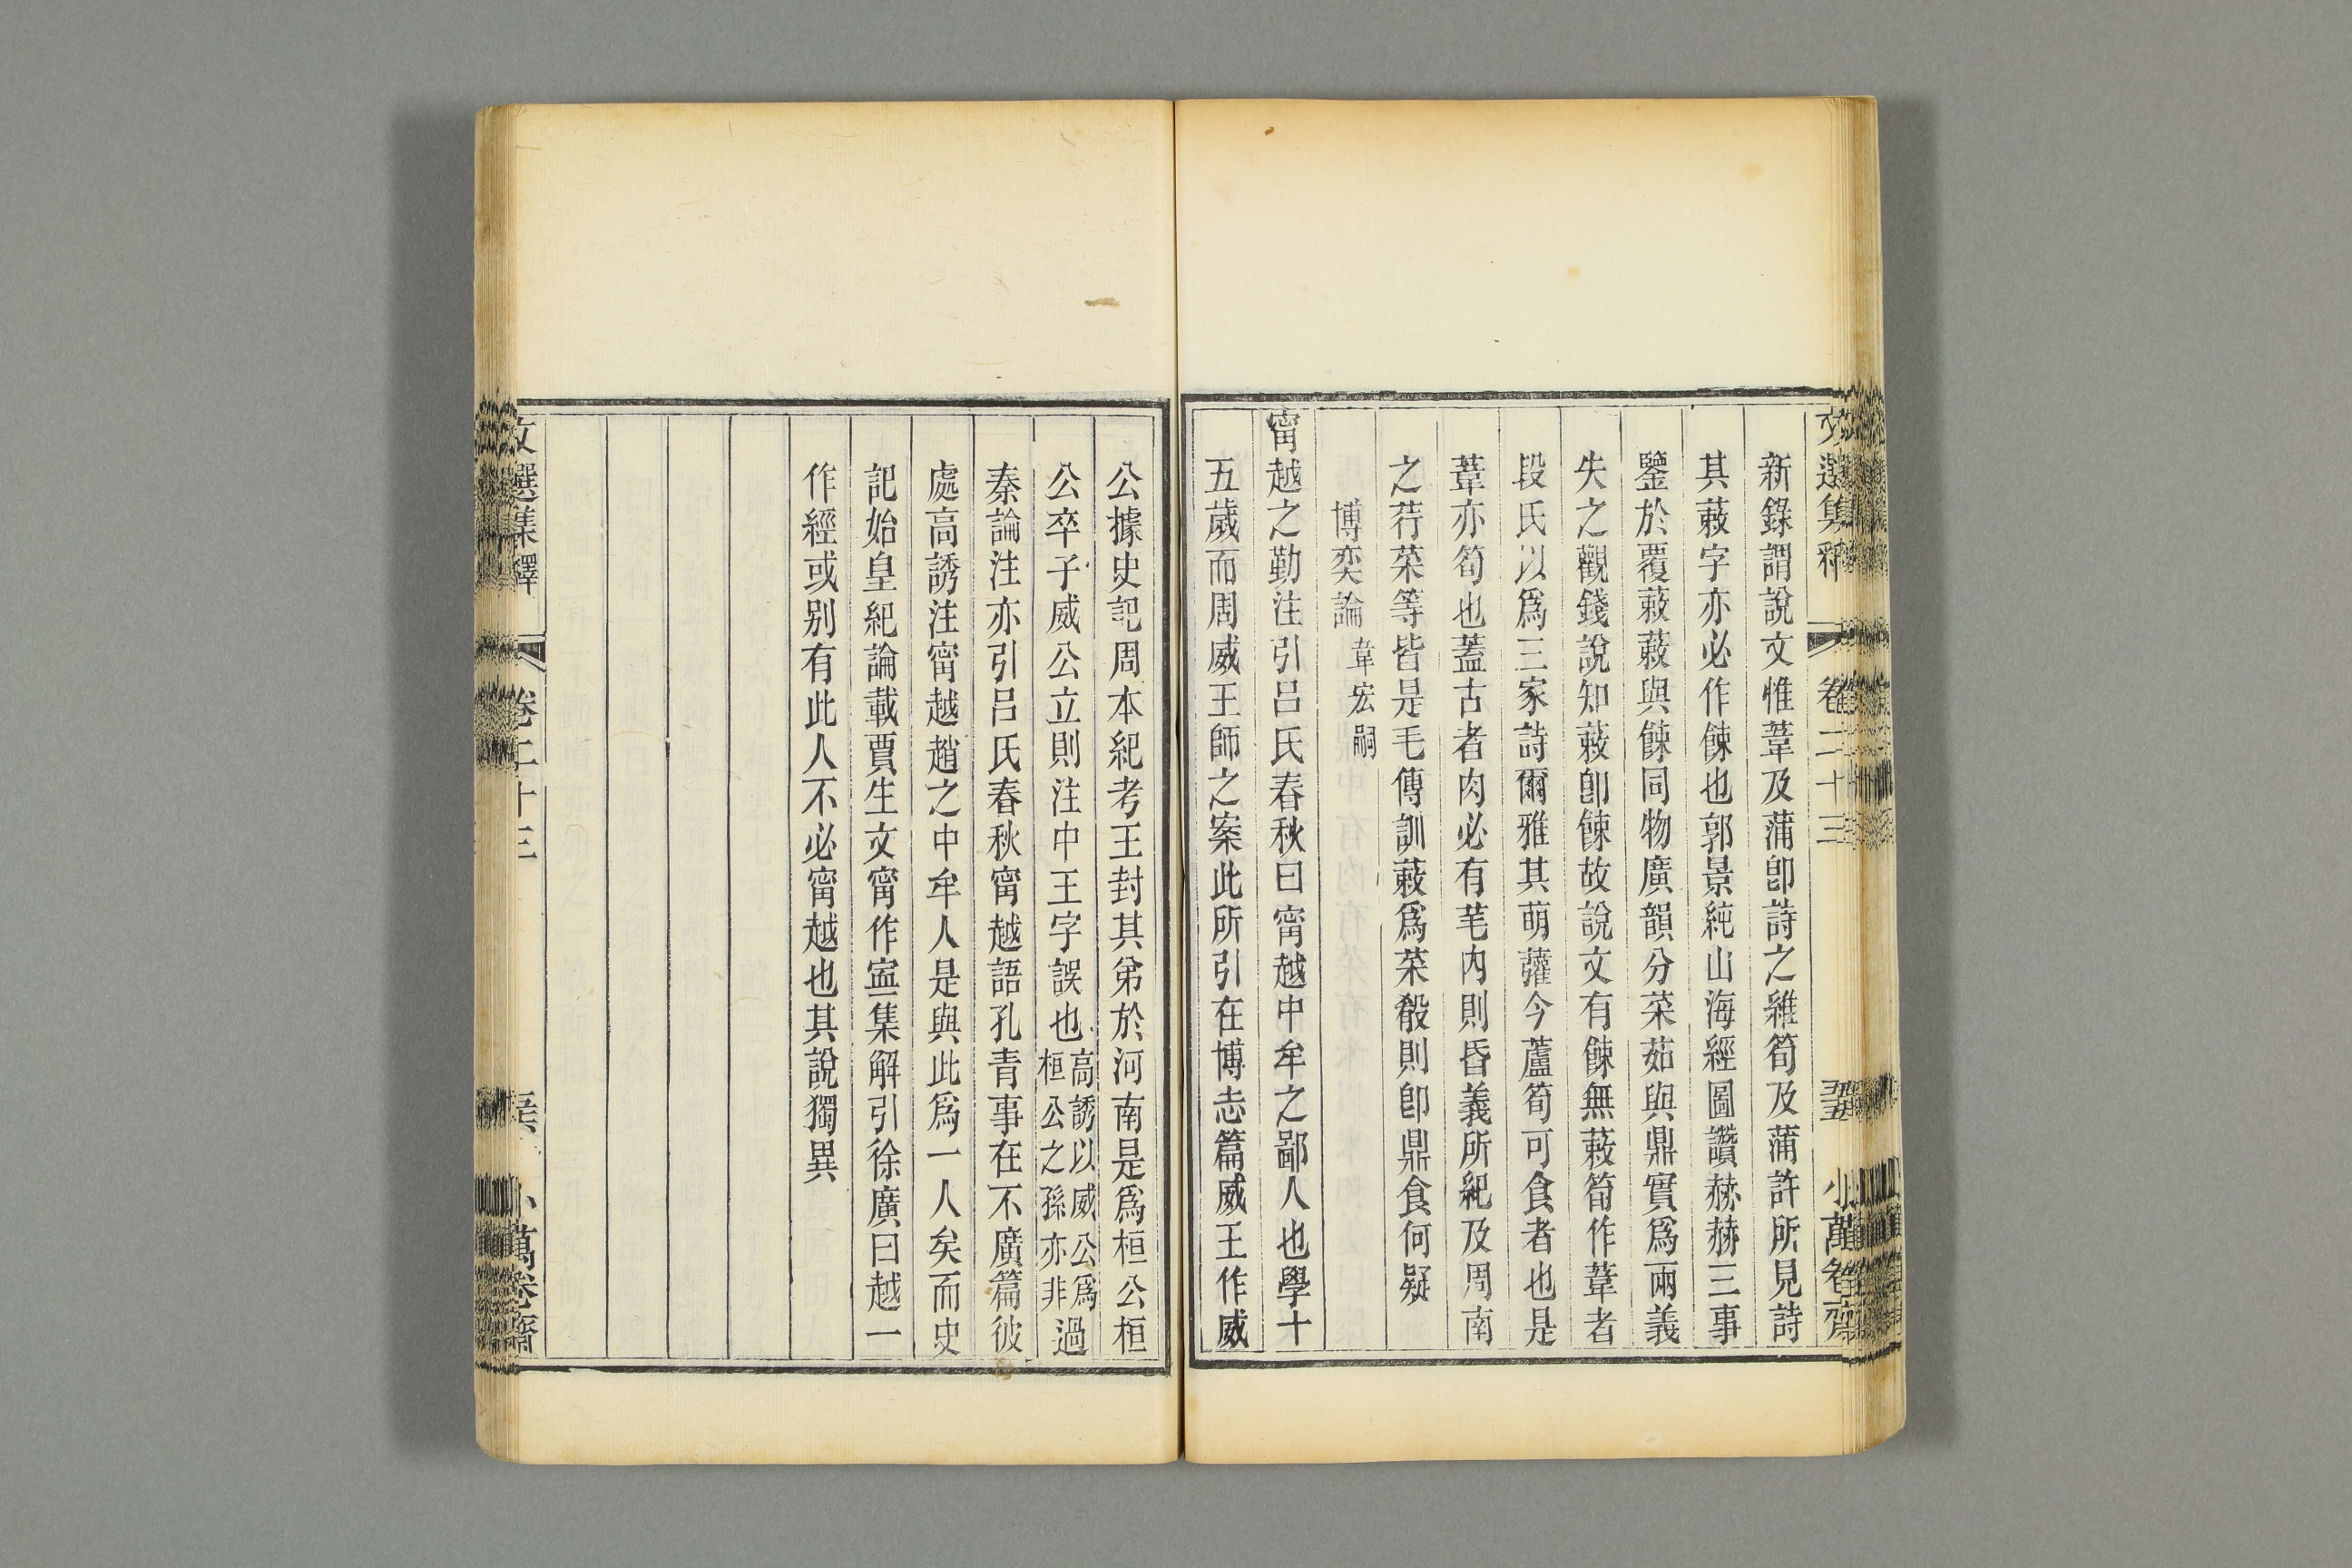 新錄謂說文惟葦及蒲卽詩之維筍及蒲許所見詩
其蔌字亦必作餗也郭景純山海經圖讚赫赫三事
鑒於覆蔌蔌與餗同物廣韻分菜茹與鼎實爲兩義
失之觀錢說知蔌卽餗故說文有餗無蔌筍作葦者
段氏以爲三家詩爾雅其萌虇今蘆筍可食者也是
葦亦筍也蓋古者肉必有芼內則昏義所紀及周南
之荇菜等皆是毛傳訓蔌爲菜殽則卽鼎食何疑
博奕論 韋宏嗣
甯越之勤注引呂氏春秋曰甯越中牟之鄙人也學十
五歲而周威王師之案此所引在博志篇威王作威
公據史記周本紀考王封其弟於河南是爲桓公桓
公卒子威公立則注中王字誤也高誘以威公爲桓公之孫亦非過
秦論注亦引呂氏春秋甯越語孔青事在不廣篇彼
處高誘注甯越趙之中牟人是與此爲一人矣而史
記始皇紀論載賈生文甯作寍集解引徐廣曰越一
作經或别有此人不必甯越也其說獨異
文選集釋 卷二十三 小萬卷齋